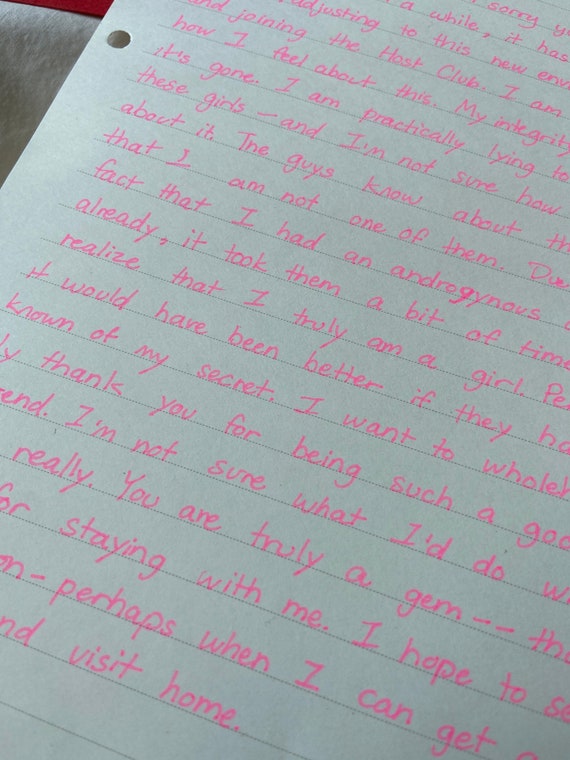 sorry
a while, it has
adjusting to this new
and joining the Host Club. I am
how I feel about this. My integrity
it's gone. I am practically lying to
these girls – and I'm not sure how
about it. The guys know about
that I am not one of them.
fact that I had an androgynous
already, it took them a bit of time
realize that I truly am a girl.
it would have been better if they
known of my secret. I want to
thank you for being such a
I'm not sure what I'd do
really. You are truly a gem --
for staying with me. I hope to
- perhaps when I can get
visit home.